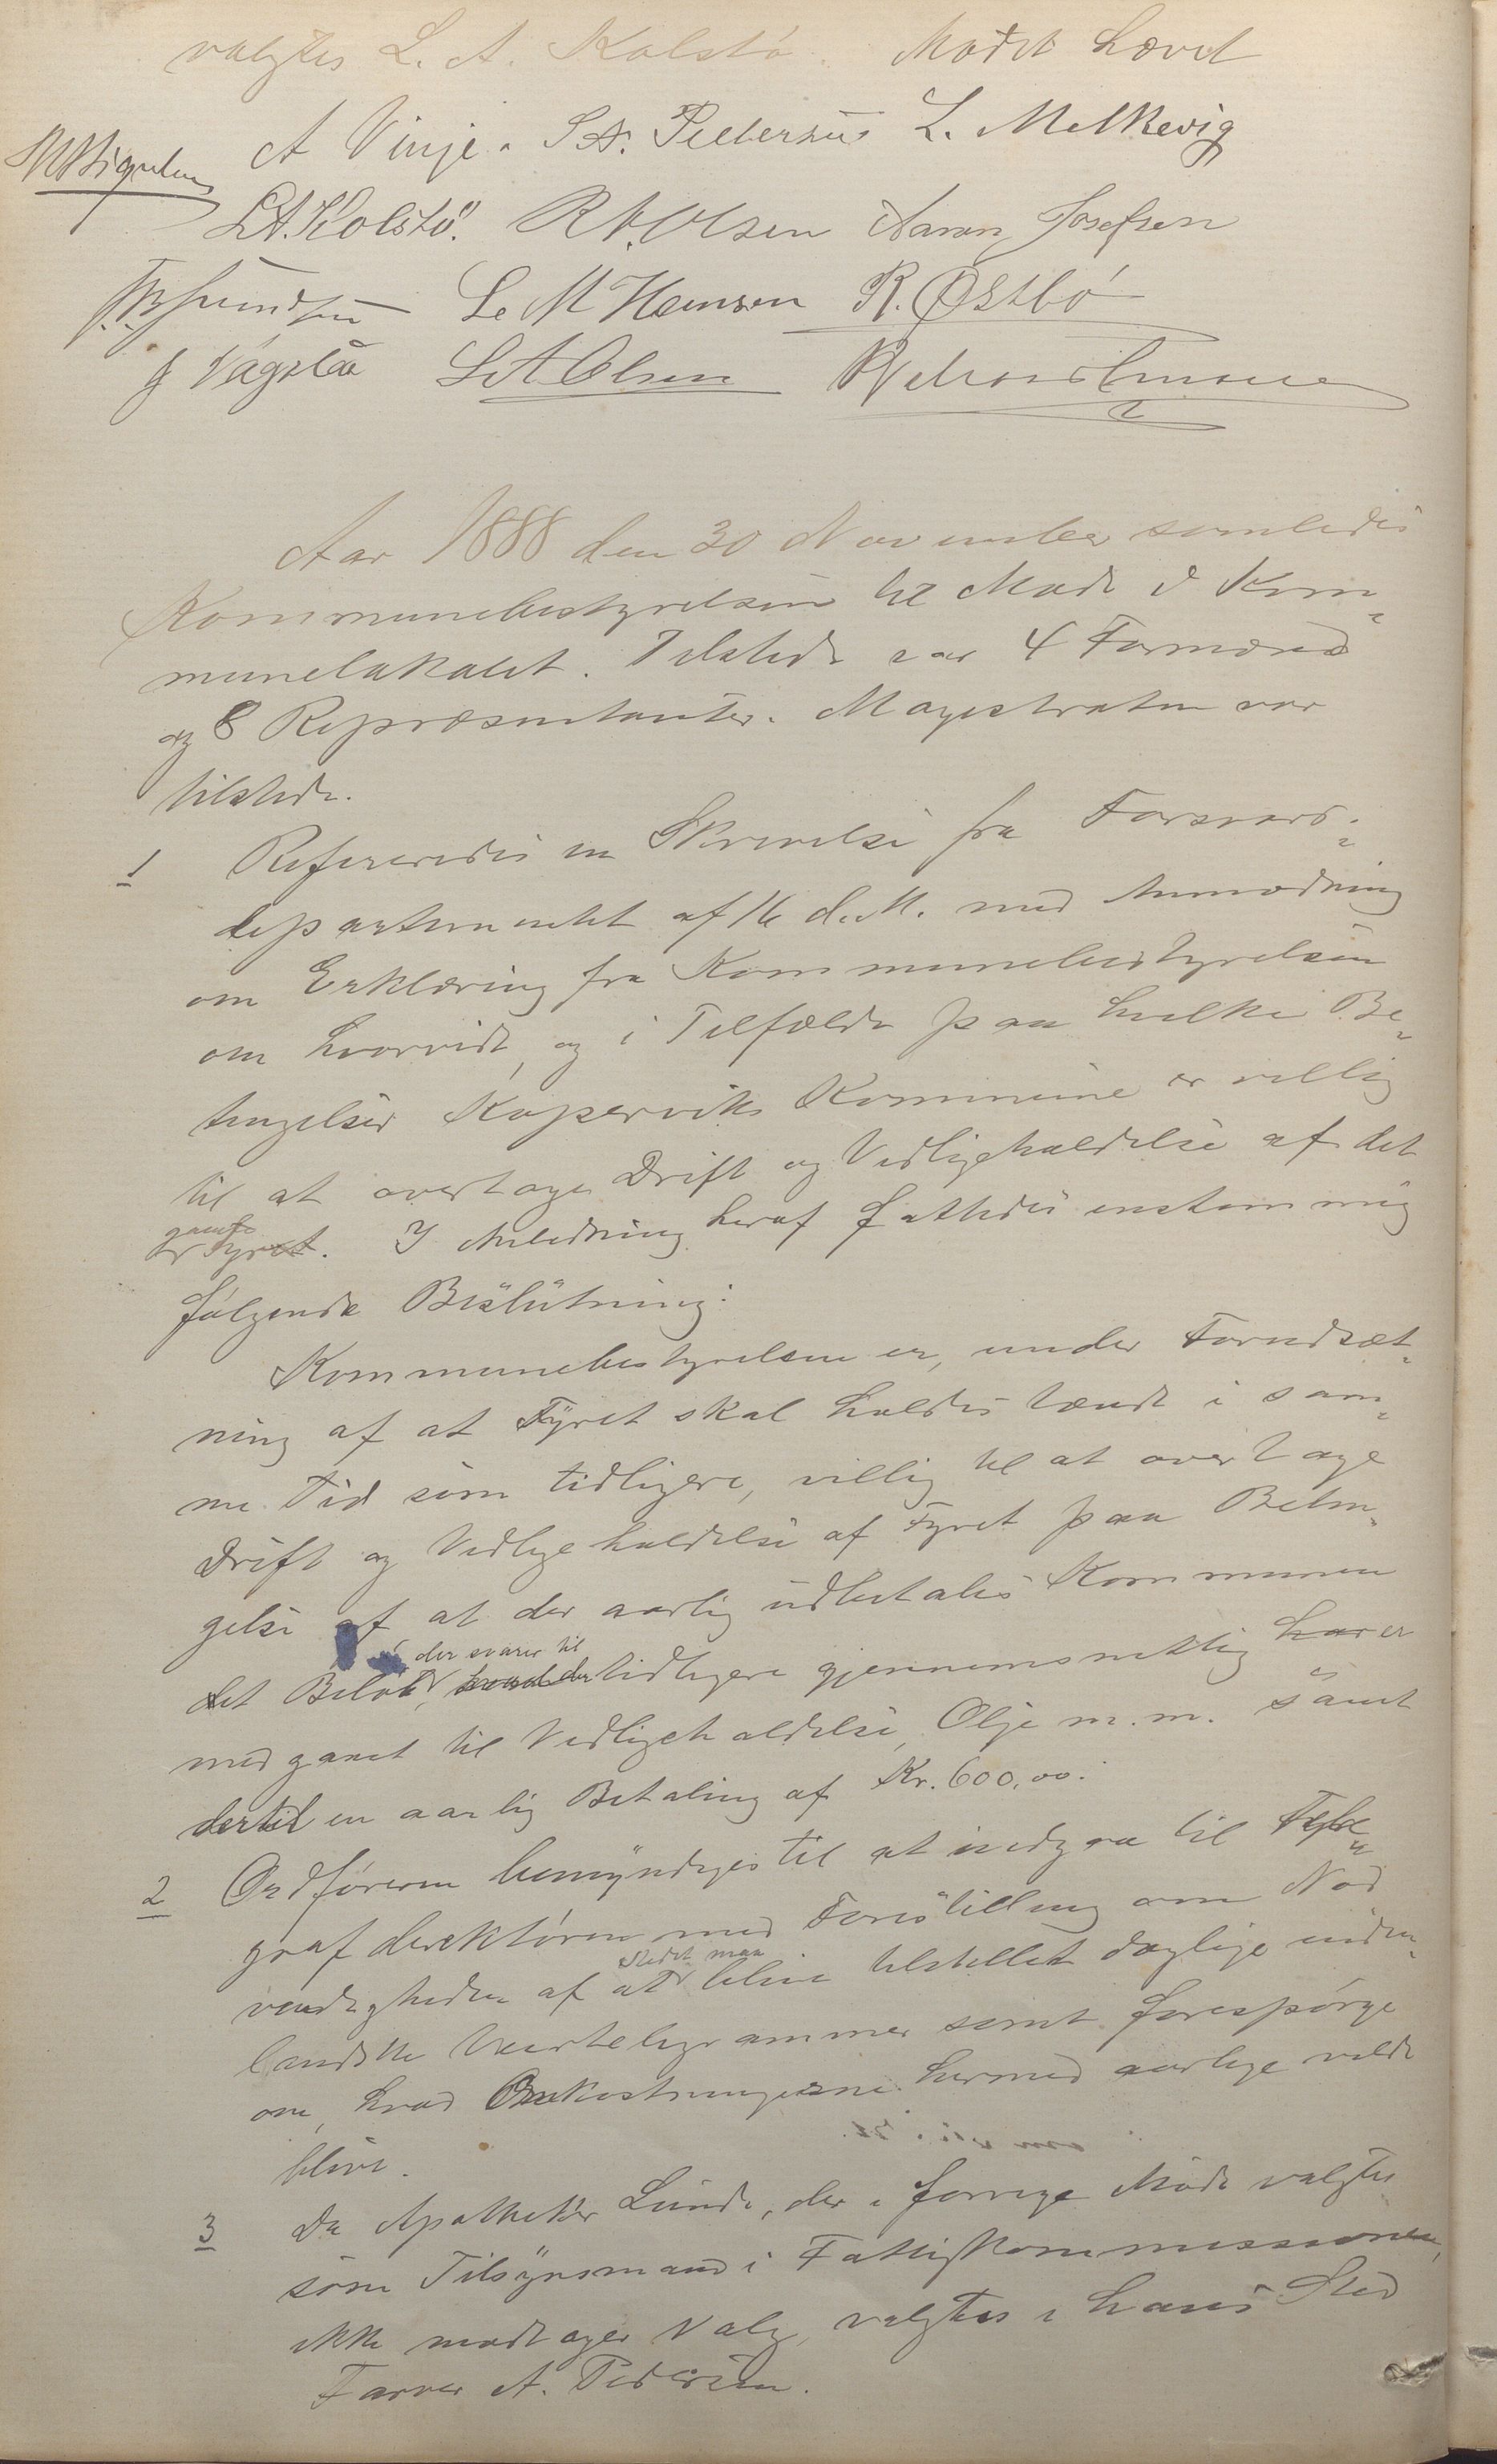 valgtes L. A. Kolstö. Mødet hævet
A Vinje. S. A. Pedersen L. Melkevig
L A. Kolstö. R A. Olsen Aanon Josefsen
L. M Hansen R. Østbö
J Vågslå L A. Olsen
Aar 1888 den 30 November samledes
Kommunebestyrelsen til Møde i Kom-
munelokalet. Tilstede var 4 Formænd
og 8 Repræsentanter. Magistraten var
tilstede.
1 Refereredes en Skrivelse fra Forsvars-
departementet af 16 d. M. med Anmodning
om Erklæring fra Kommunebestyrelsen
om hvorvidt, og i Tilfælde paa hvilke Be-
tingelser Kopervik Kommune er villig
til at overtage Drift og Vedligeholdelse af det
Fyret. I Anledning heraf fattedes enstemmig
følgende Beslutning:
Kommunebestyrelsen er, under Forudsæt-
ning af at Fyret skal holdes tændt i sam-
me Tid som tidligere, villig til at overtage
Drift og Vedligeholdelse af Fyret paa Betin-
gelse af at der aarlig udbetales Kommunen
der svarer til
det Beløb, hvad der tidligere gjennemsnitlig har er
medgaaet til Vedligeholdelse, Olje m. m. samt
dertil en aarlig Betaling af Kr. 600,00.
2 Ordføreren bemyndiges til at indgaa til Tele-
grafdirektøren med Forestilling om Nød
Stedet maa
vendigheden af at blive tilstillet daglige inden-
landske Veirtelegrammer samt forespørge
om, hvad Omkostningerne hermed aarlige vilde
blive.
3 Da Apotheker Lunde, der i forrige Møde valgtes
som Tilsynsmand i Fattigkommissionen,
ikke modtager Valg, valgtes i hans Sted
Farver A. Pedersen.